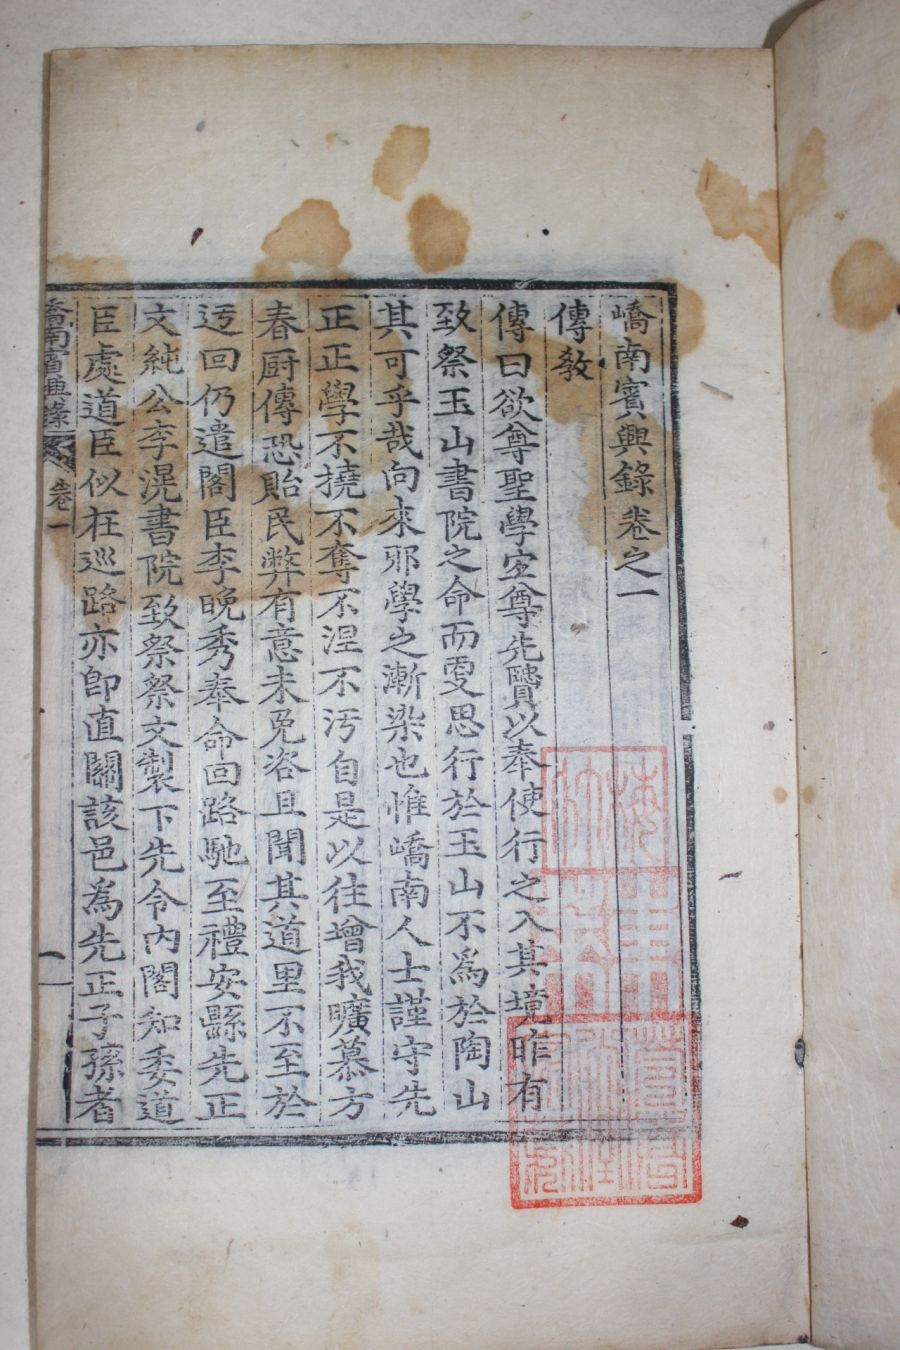 嶠南賓興錄卷之一
傳教
傳曰欲尊聖學宜尊先賢以奉使行之入其境昨有
致祭玉山書院之命而更思行於玉山不爲於陶山
其可乎哉向來邪學之漸染也惟嶠南人士謹守先
正正學不撓不奪不涅不汚自是以往增我曠慕方
春廚傳恐貽民弊有意未免咨且聞其道里不至於
迃回仍遣閣臣李晩秀奉命回路馳至禮安縣先正
文純公李滉書院致祭祭文製下先令內閣知委道
臣處道臣似在巡路亦卽直關該邑爲先正子孫者
嶠南賓興錄 卷一 一